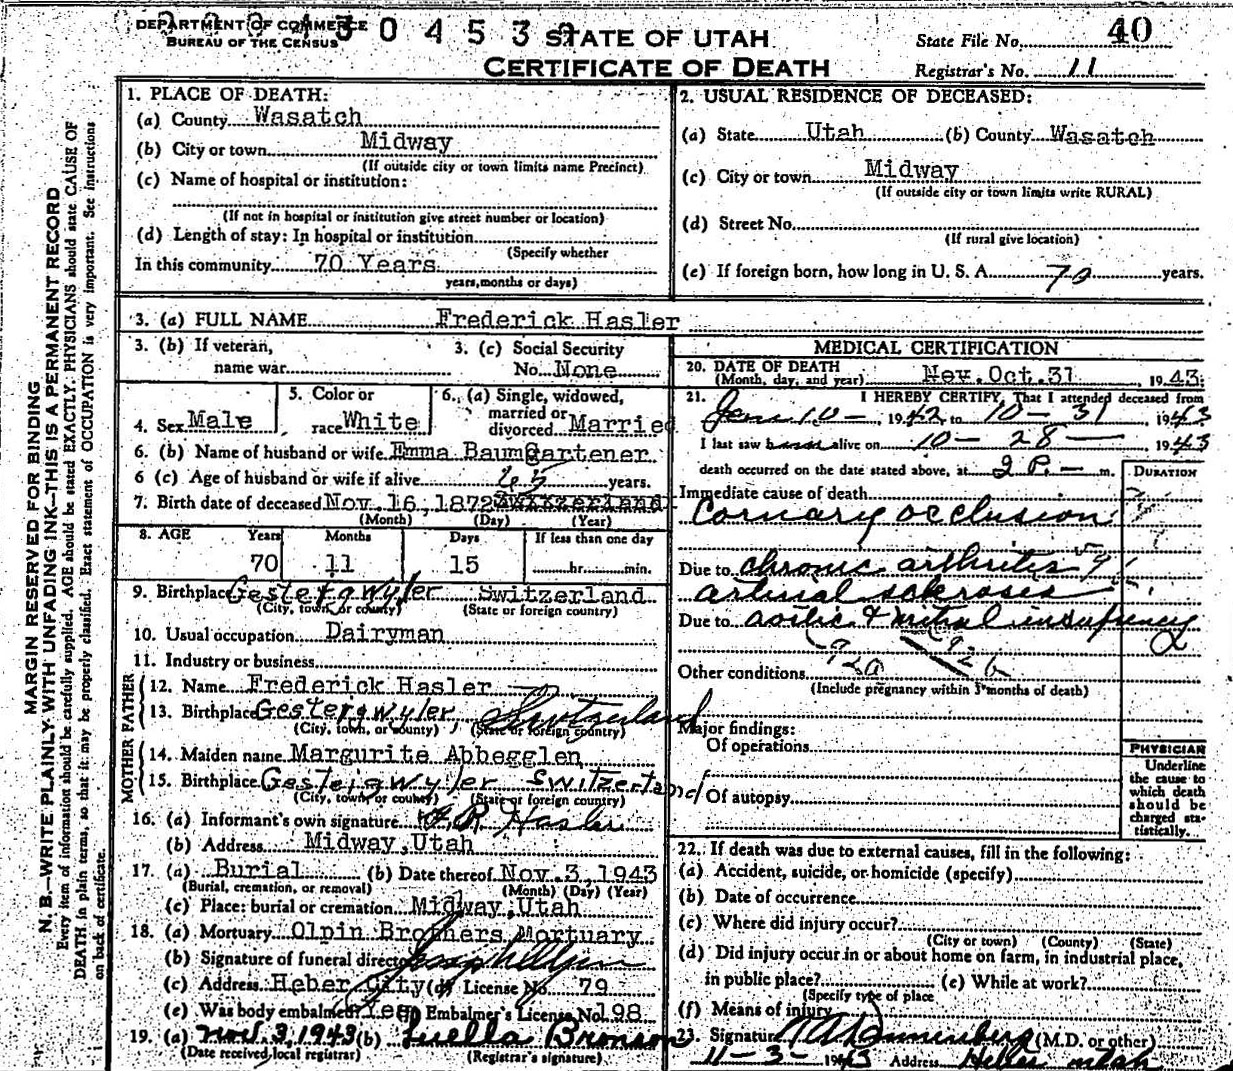 DEPARTMENT OF COMMERCE
BUREAU OF THE CENSUS
3 0 4 5 3
STATE OF UTAH
CERTIFICATE OF DEATH
State File No. 40
Registrar's No. 11
MARGIN RESERVED FOR BINDING
N. B.—WRITE PLAINLY WITH UNFADING INK—THIS IS A PERMANENT RECORD
Every item of information should be carefully supplied. AGE should be stated EXACTLY. PHYSICIANS should state CAUSE OF
DEATH in plain terms, so that it may be properly classified. Exact statement of OCCUPATION is very important. See instructions
on back of certificate.
1. PLACE OF DEATH:
(a) County Wasatch
(b) City or town Midway
(If outside city or town limits name Precinct)
(c) Name of hospital or institution:
(If not in hospital or institution give street number or location)
(d) Length of stay: In hospital or institution
(Specify whether
In this community 70 Years
years, months or days)
2. USUAL RESIDENCE OF DECEASED:
(a) State Utah (b) County Wasatch
(c) City or town Midway
(If outside city or town limits write RURAL)
(d) Street No.
(If rural give location)
(e) If foreign born, how long in U. S. A. 70 years.
3. (a) FULL NAME Frederick Hasler
3. (b) If veteran, name war
3. (c) Social Security No. None
4. Sex Male
5. Color or race White
6. (a) Single, widowed, married or divorced Married
6. (b) Name of husband or wife Emma Baumgartener
6 (c) Age of husband or wife if alive 65 years.
7. Birth date of deceased Nov. 16, 1872 Switzerland
(Month) (Day) (Year)
8. AGE Years Months Days If less than one day
70 11 15 hr. min.
9. Birthplace Gesteigwyler Switzerland
(City, town, or county) (State or foreign country)
10. Usual occupation Dairyman
11. Industry or business
FATHER
12. Name Frederick Hasler
13. Birthplace Gesteigwyler, Switzerland
(City, town, or county) (State or foreign country)
MOTHER
14. Maiden name Margurite Abbegglen
15. Birthplace Gesteigwyler Switzerland
(City, town, or county) (State or foreign country)
16. (a) Informant's own signature F. R. Hasler
(b) Address Midway, Utah
17. (a) Burial (b) Date thereof Nov. 3, 1943
(Burial, cremation, or removal) (Month) (Day) (Year)
(c) Place: burial or cremation Midway, Utah
18. (a) Mortuary Olpin Brothers Mortuary
(b) Signature of funeral director
(c) Address Heber City (d) License No. 79
(e) Was body embalmed Yes Embalmer's License No. 198
19. (a) Nov. 3, 1943 (b) Luella Bronson
(Date received local registrar) (Registrar's signature)
MEDICAL CERTIFICATION
20. DATE OF DEATH
(Month, day, and year) Nov. Oct. 31, 1943
21. I HEREBY CERTIFY, That I attended deceased from
Jan 10 — 1942 to 10 — 31 1943
I last saw him alive on 10 — 28 — 1943
death occurred on the date stated above, at 2 P. — m.
DURATION
Immediate cause of death
Cornary occlusion
Due to chronic arthritis
arterial sklerosis
Due to aortic & mitral insufficency
92a 92b
Other conditions
(Include pregnancy within 3 months of death)
Major findings:
Of operations
Of autopsy
PHYSICIAN
Underline
the cause to
which death
should be
charged sta-
tistically.
22. If death was due to external causes, fill in the following:
(a) Accident, suicide, or homicide (specify)
(b) Date of occurrence
(c) Where did injury occur?
(City or town) (County) (State)
(d) Did injury occur in or about home on farm, in industrial place,
in public place? (e) While at work?
(Specify type of place
(f) Means of injury
23. Signature (M.D. or other)
11 — 3 — 1943 Address Heber Utah